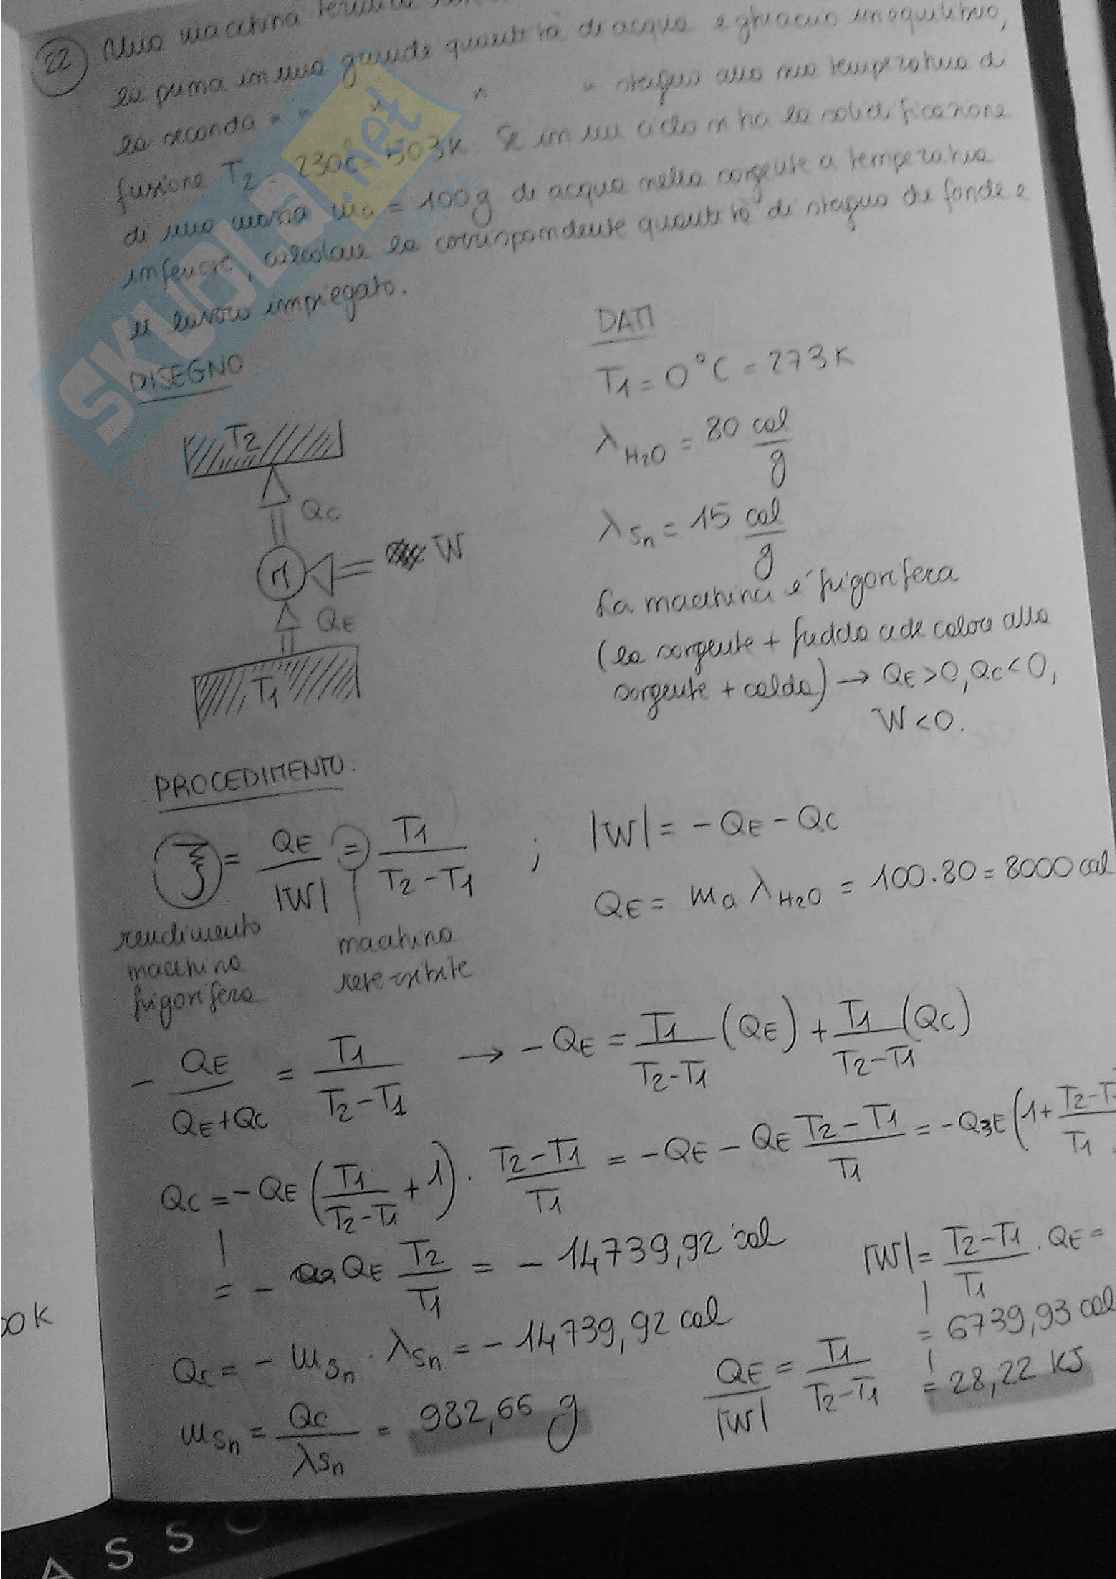 22 Una macchina
la prima in una grande quantità di acqua e ghiaccio in equilibrio,
la seconda " " " " stagno alla sua temperatura di
fusione T2 = 230°C = 503K. Se in un ciclo si ha la solidificazione
di una massa ma = 100g di acqua nella sorgente a temperatura
inferiore, calcolare la corrispondente quantità di stagno che fonde e
il lavoro impiegato.
SKUOLA.net
DISEGNO
T2
QC
M
W
QE
T1
DATI
T1 = 0°C = 273K
λH2O = 80 cal/g
λSn = 15 cal/g
La macchina è frigorifera
(la sorgente + fredda cede calore alla
sorgente + calda) → QE>0, QC<0,
W<0.
PROCEDIMENTO.
ξ = QE/|W| = T1/(T2-T1) ; |W| = -QE - QC
QE = ma λH2O = 100.80 = 8000 cal
rendimento
macchina
frigorifera
macchina
reversibile
- QE/(QE+QC) = T1/(T2-T1) → -QE = T1/(T2-T1) (QE) + T1/(T2-T1) (QC)
QC = -QE (T1/(T2-T1) + 1) · (T2-T1)/T1 = -QE - QE (T2-T1)/T1 = -QE (1 + (T2-T1)/T1
= - QE T2/T1 = - 14739,92 cal
|W| = (T2-T1)/T1 . QE =
= 6739,93 cal
= 28,22 KJ
QC = - mSn · λSn = - 14739,92 cal
QE/|W| = T1/(T2-T1)
mSn = QC/λSn = 982,66 g
00 K
ASSO